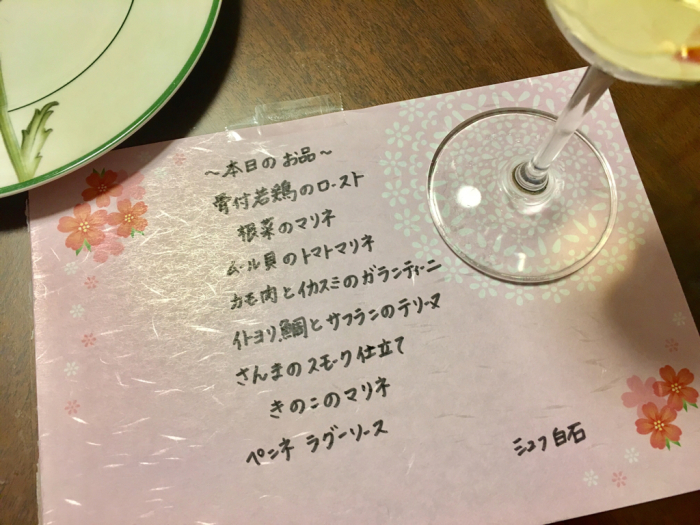 ～本日のお品～
骨付若鶏のロースト
根菜のマリネ
ムール貝のトマトマリネ
カモ肉とイカスミのガランティーニ
イトヨリ鯛とサフランのテリーヌ
さんまのスモーク仕立て
きのこのマリネ
ペンネ ラグーソース
シェフ白石